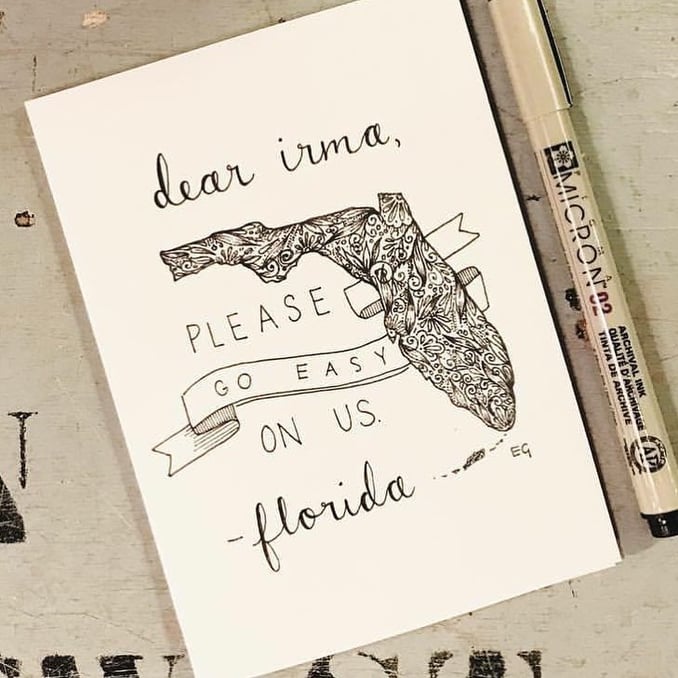 dear irma,
PLEASE
GO EASY
ON US.
-florida
EG
MICRON 02
ARCHIVAL INK
QUALITÉ D'ARCHIVAGE
TINTA DE ARCHIVE